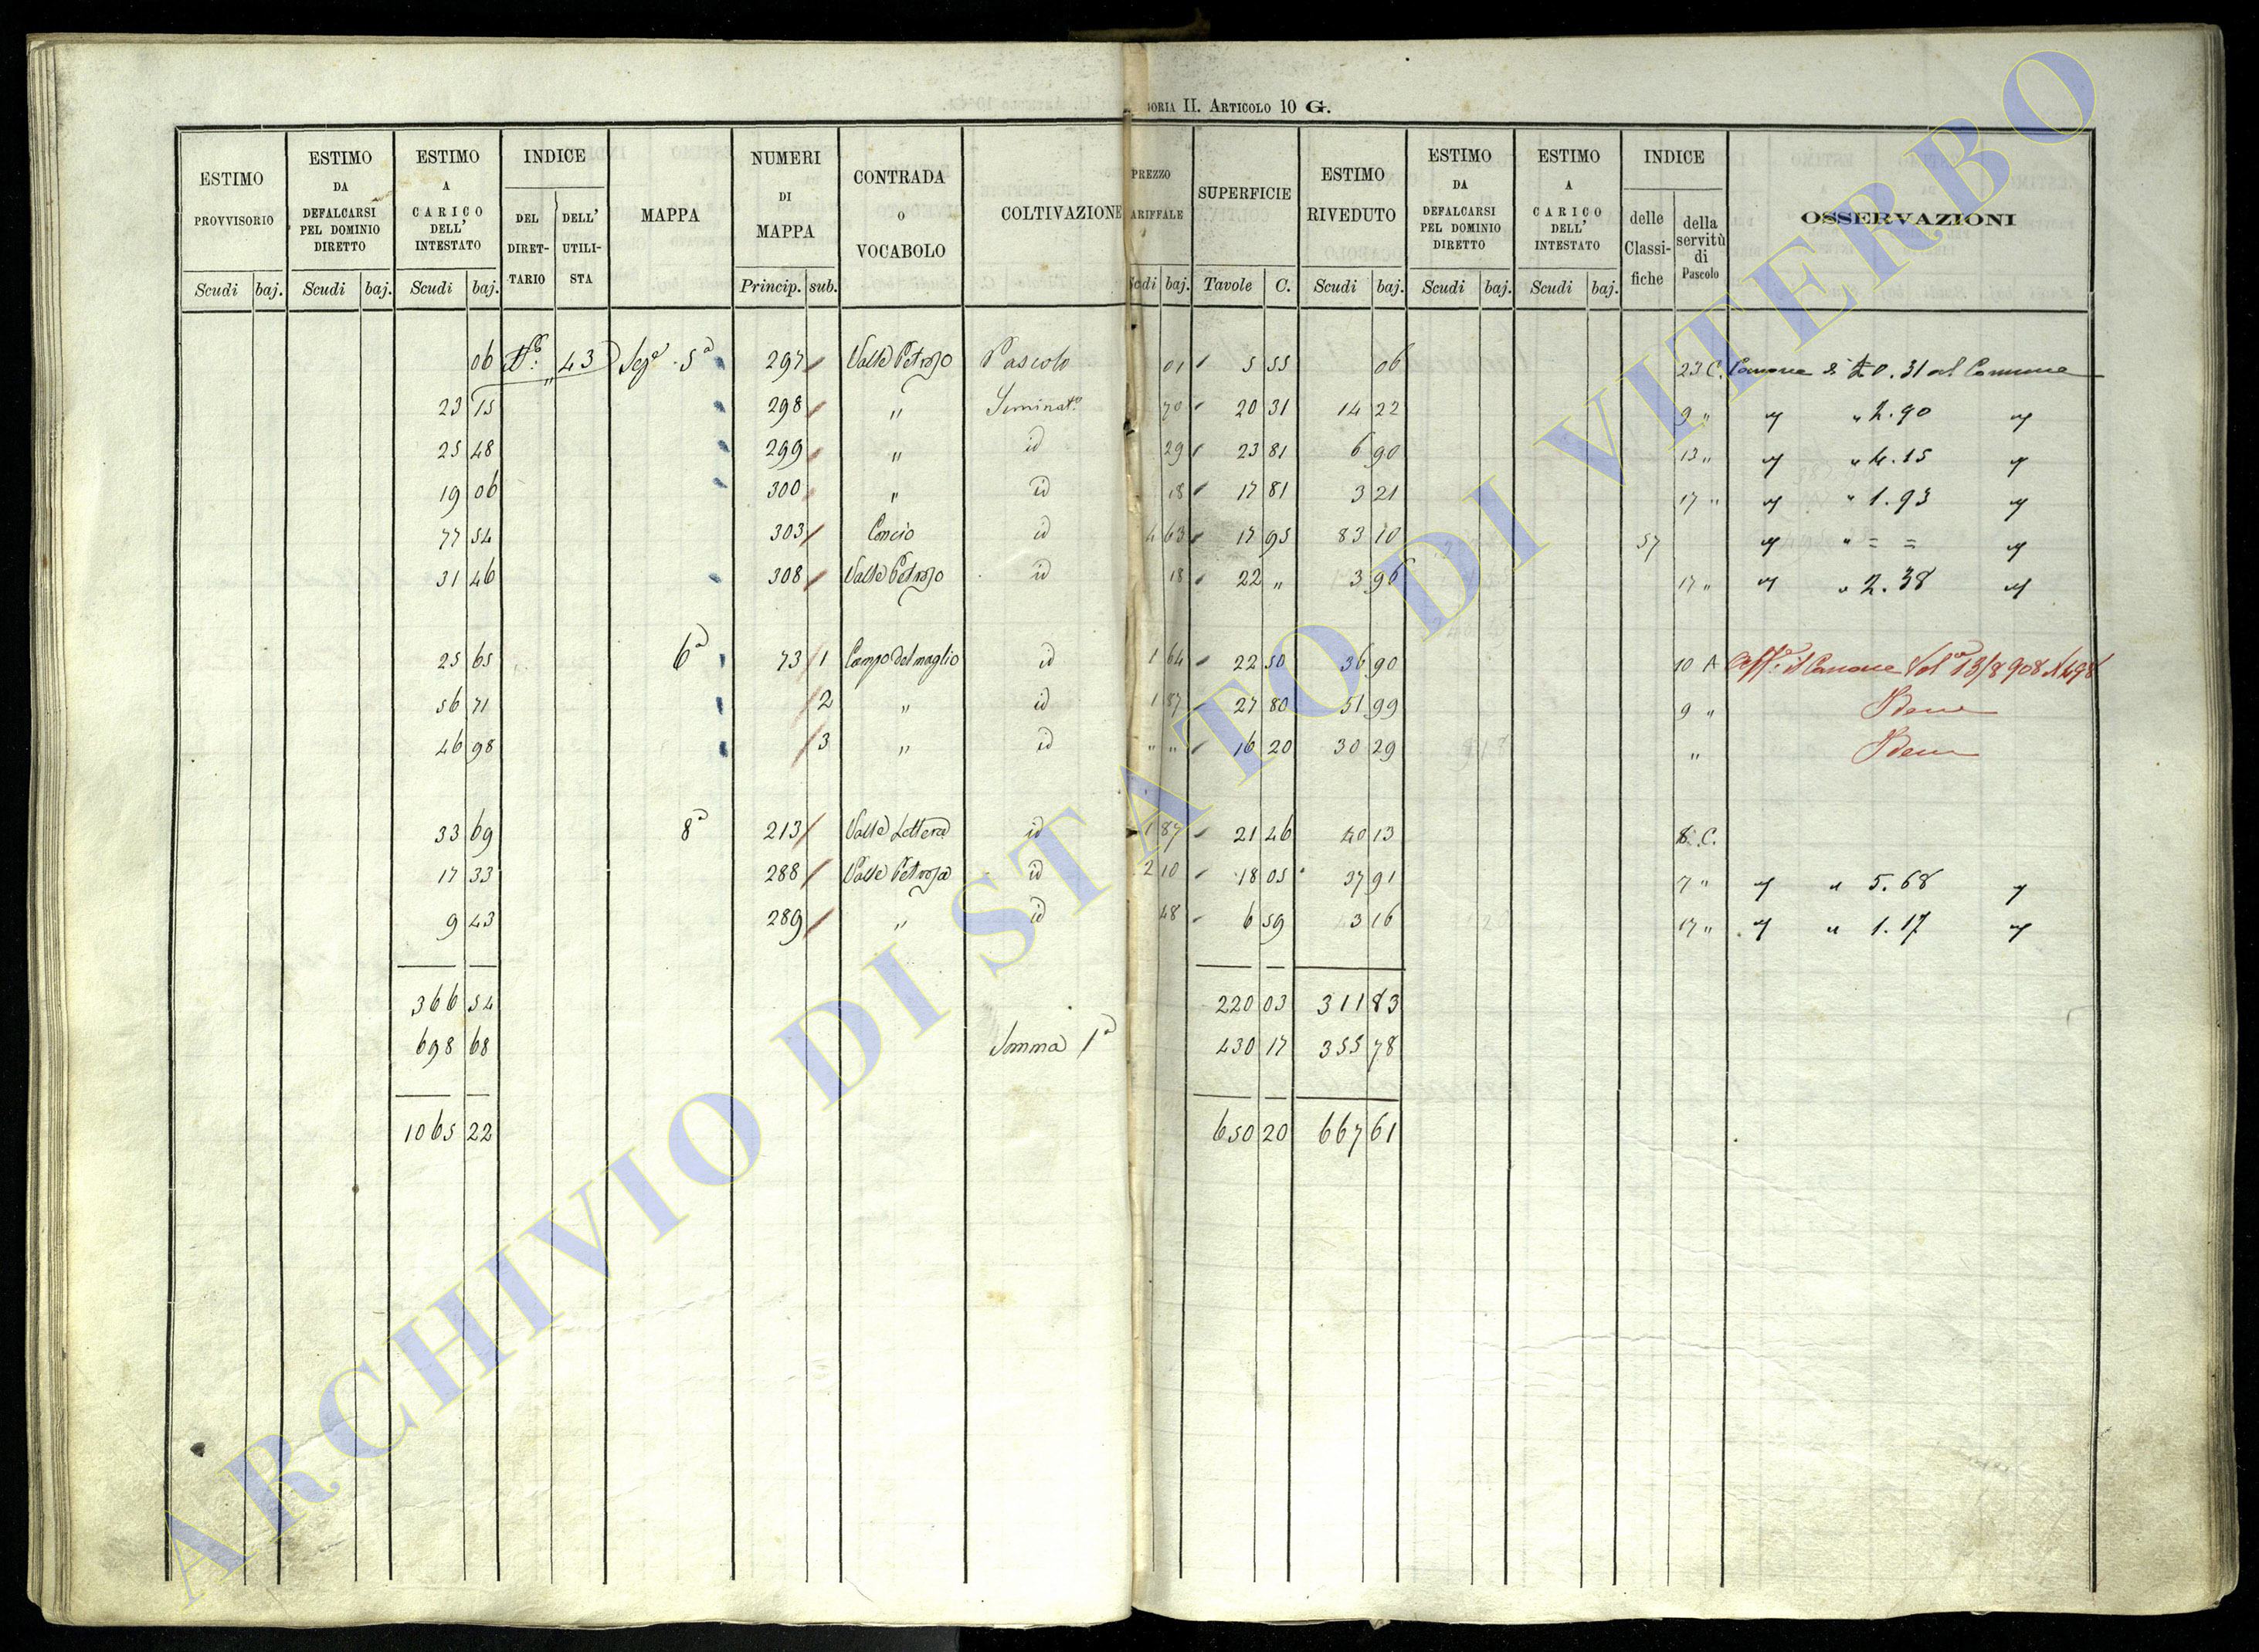 ORIA II. ARTICOLO 10 G.
ESTIMO PROVVISORIO Scudi baj.
ESTIMO DA DEFALCARSI PEL DOMINIO DIRETTO Scudi baj.
ESTIMO A CARICO DELL' INTESTATO Scudi baj.
INDICE DEL DIRETTARIO DELL' UTILISTA
MAPPA
NUMERI DI MAPPA Princip. sub.
CONTRADA O VOCABOLO
COLTIVAZIONE
PREZZO ARIFFALE Scudi baj.
SUPERFICIE Tavole C.
ESTIMO RIVEDUTO Scudi baj.
ESTIMO DA DEFALCARSI PEL DOMINIO DIRETTO Scudi baj.
ESTIMO A CARICO DELL' INTESTATO Scudi baj.
INDICE delle Classifiche della servitù di Pascolo
OSSERVAZIONI
06 43 Seg.a 5a 297 Valle Petrosa Pascolo 01 5 55 06 23 C. Canone di 0.31 al Comune
23 15 298 " Seminat.o 70 20 31 14 22 9 " " " 2.90 "
25 48 299 " id 29 23 81 6 90 13 " " " 4.15 "
19 06 300 " id 18 17 81 3 21 17 " " " 1.93 "
77 54 303 Concio id 4 63 17 95 83 10 57 " " = = "
31 46 308 Valle Petrosa id 18 22 " 3 96 17 " " " 2.38 "
25 65 6a 73 1 Campo del maglio id 1 64 22 50 36 90 10 A Aff.o il Canone Vol.a 13/8 908 N 498
56 71 2 " id 1 87 27 80 51 99 9 " Idem
46 98 3 " id " " 16 20 30 29 " Idem
33 69 8a 213 Valle Lettera id 1 87 21 46 40 13 8 C.
17 33 288 Valle Petrosa id 2 10 18 05 37 91 7 " " " 5.68 "
9 43 289 " id 48 6 59 3 16 17 " " " 1.17 "
366 54 220 03 311 83
698 68 Somma 1a 430 17 355 78
1065 22 650 20 667 61
ARCHIVIO DI STATO DI VITERBO